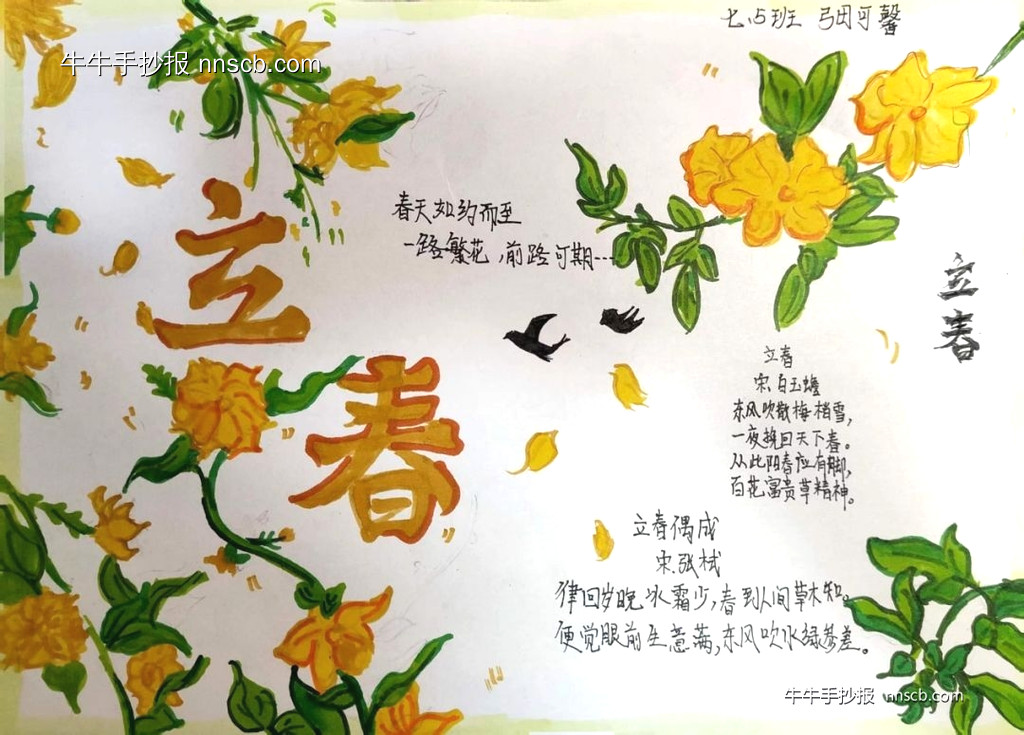 七.5班 弓因可馨
牛牛手抄报 nnscb.com
春天如约而至
一路繁花，前路可期…
立春
立春
立春
宋.白玉蟾
东风吹散梅梢雪，
一夜挽回天下春。
从此阳春应有脚，
百花富贵草精神。
立春偶成
宋.张栻
律回岁晚冰霜少，春到人间草木知。
便觉眼前生意满，东风吹水绿参差。
牛牛手抄报 nnscb.com